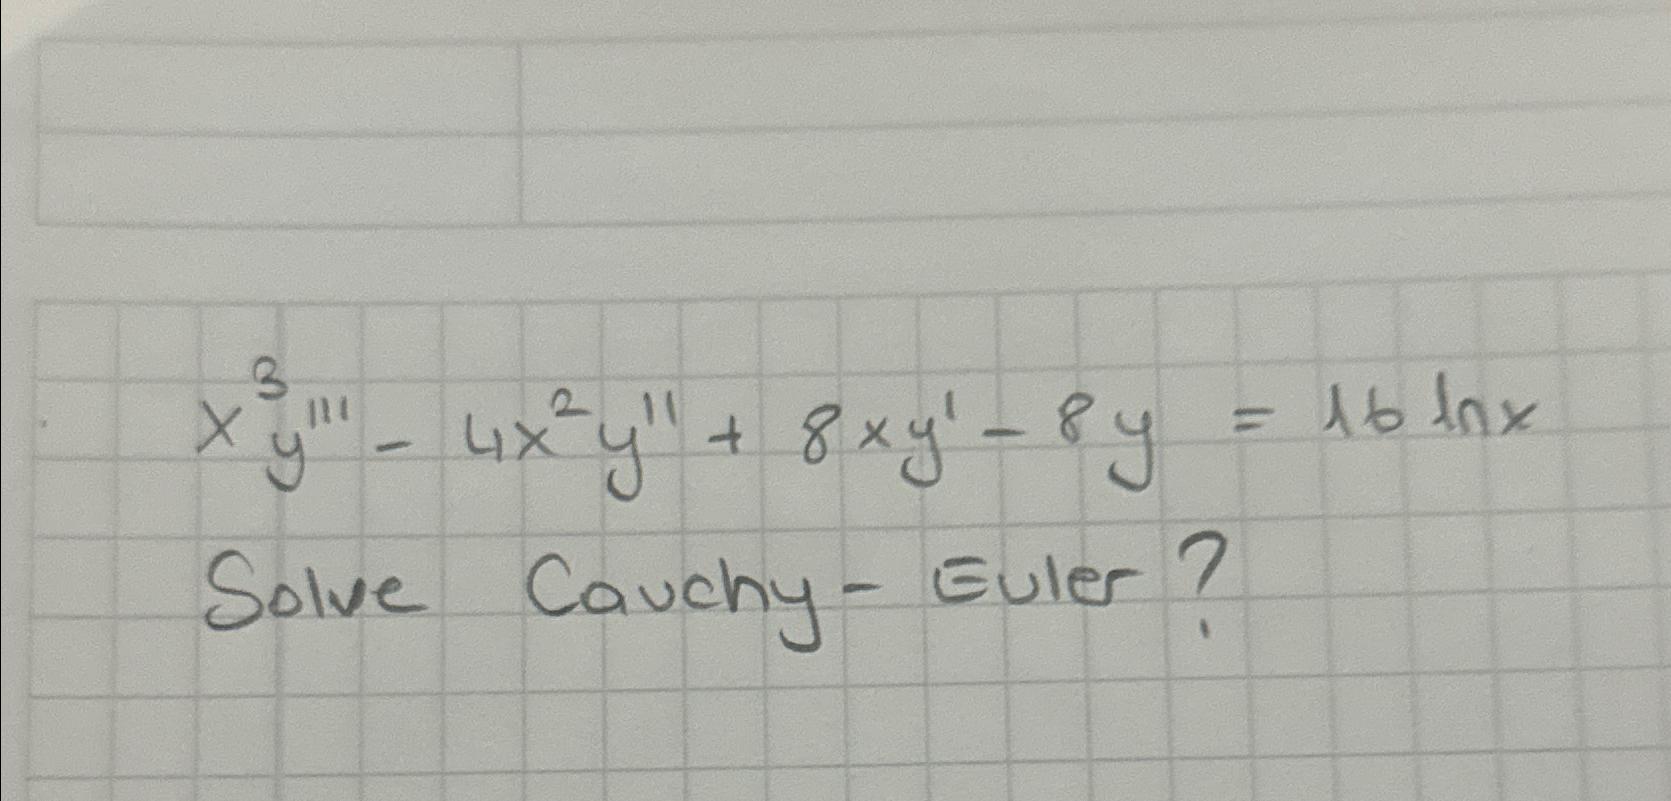 x³y''' - 4x²y'' + 8xy' - 8y = 16 lnx
Solve Cauchy-Euler?